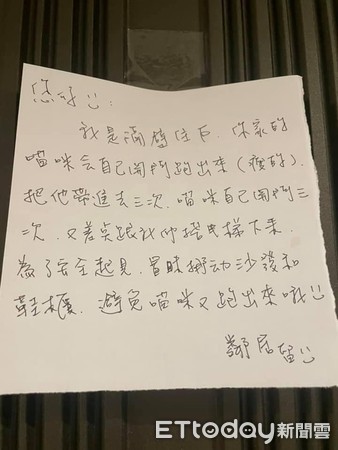 您好:
我是隔壁住戶,你家的
喵咪会自己開門跑出來(瘦的).
把他帶進去三次,喵咪自己開門三
次,又差臭跟我們搭电梯下來.
為了安全起見,冒昧挪动沙發和
鞋櫃,避免喵咪又跑出來哦
鄰居留
ETtoday新聞雲